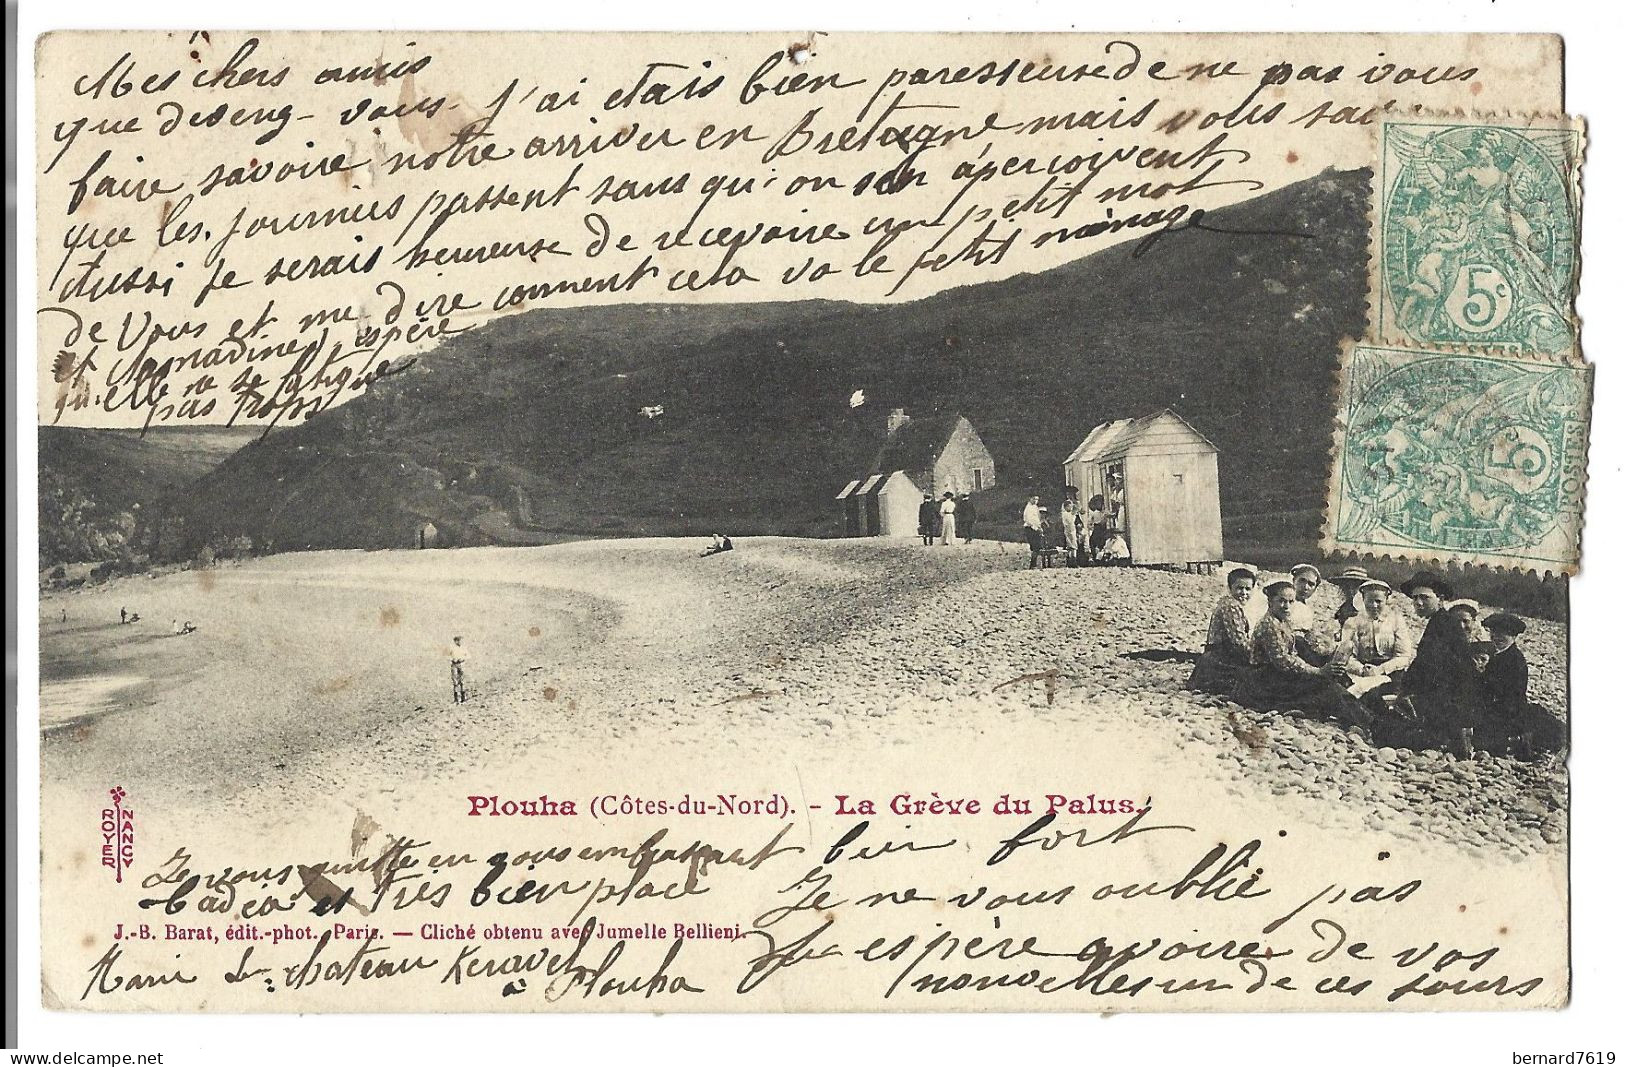 Mes chers amis
que deveng-vous. J'ai etais bien paresseuse de ne pas vous
faire savoire notre arriver en Bretagne mais vous sav
que les journius passent sans qu'on s'en àperçoivent
Aussi je serais heureuse de recevoire un petit mot
de Vous et me dire comment cela va le petit mènage
et espère
qu'elle ne se fatigue
pas trops
5c
5c
POSTES
Plouha (Côtes-du-Nord). - La Grève du Palus.
ROYER
NANCY
Je vous quitte en vous embrassant bien fort
et très bien place Je ne vous oublie pas
J.-B. Barat, édit.-phot., Paris. — Cliché obtenu avec Jumelle Bellieni.
espère avoire de vos
Marie chateau Keravel
à Plouha
nouvelles un de ces jours
bernard7619